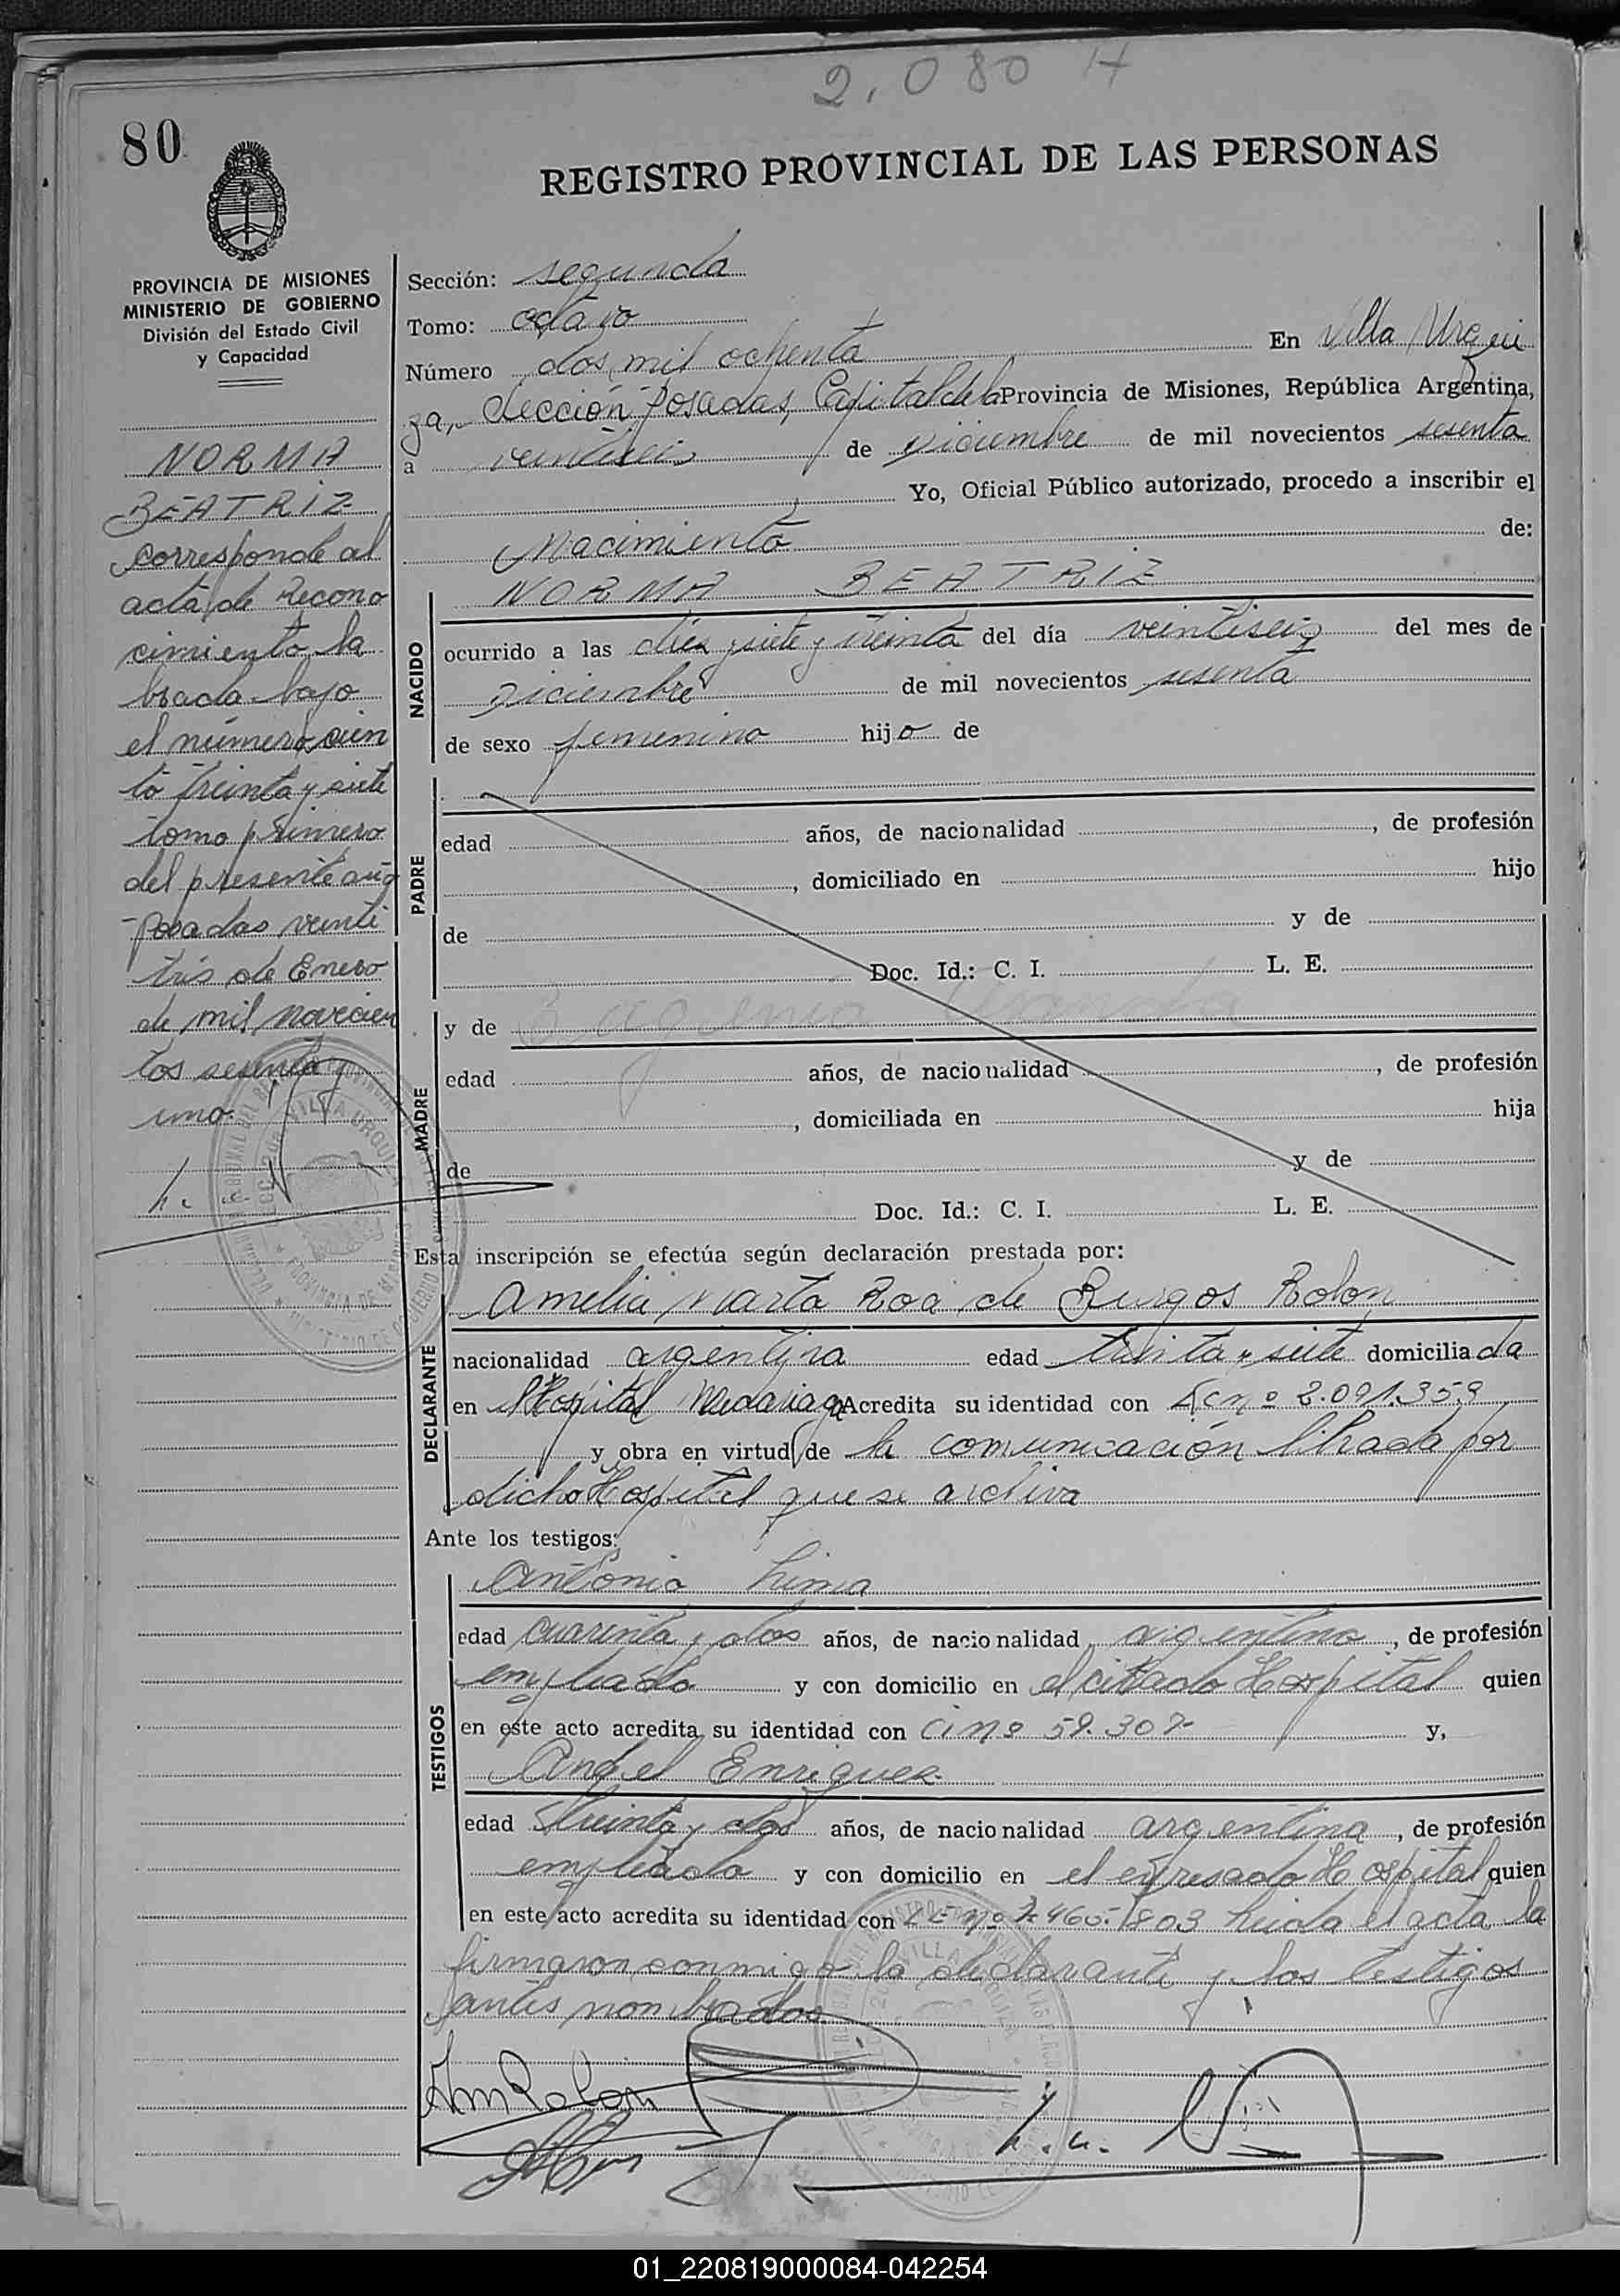 2.080 H
80
REGISTRO PROVINCIAL DE LAS PERSONAS
PROVINCIA DE MISIONES
MINISTERIO DE GOBIERNO
División del Estado Civil
y Capacidad
NORMA
BEATRIZ
corresponde al
acta de recono
cimiento la
brada bajo
el número cien
to treinta y siete
tomo primero
del presente año
Posadas veinti
trés de Enero
de mil novecien
tos sesenta y
uno.
Sección: segunda
Tomo: octavo
Número dos mil ochenta En Villa Urqui
za, Sección Posadas, Capital de la Provincia de Misiones, República Argentina,
a veintiseis de Diciembre de mil novecientos sesenta
Yo, Oficial Público autorizado, procedo a inscribir el
Nacimiento de:
NORMA BEATRIZ
NACIDO
ocurrido a las diez y siete y treinta del día veintiseis del mes de
Diciembre de mil novecientos sesenta
de sexo femenino hijo de
PADRE
edad años, de nacionalidad , de profesión
, domiciliado en hijo
de y de
Doc. Id.: C. I. L. E.
MADRE
y de
edad años, de nacionalidad , de profesión
, domiciliada en hija
de y de
Doc. Id.: C. I. L. E.
Esta inscripción se efectúa según declaración prestada por:
DECLARANTE
Amelia Marta Roa de Burgos Rolon
nacionalidad argentina edad treinta y siete domiciliada
en Hospital Madariaga Acredita su identidad con Lc nº 2.091.359
y obra en virtud de la comunicación librada por
dicho Hospital que se archiva
Ante los testigos:
TESTIGOS
Antonio Lima
edad cuarenta y dos años, de nacionalidad argentina, de profesión
empleado y con domicilio en el citado Hospital quien
en este acto acredita su identidad con Ci nº 59.307 y,
Angel Enriquez
edad treinta y dos años, de nacionalidad argentina, de profesión
empleado y con domicilio en el expresado Hospital quien
en este acto acredita su identidad con LE nº 7.465.803 Leida el acta la
firmaron conmigo la declarante y los testigos
antes nombrados.
Am Rolon
01_220819000084-042254